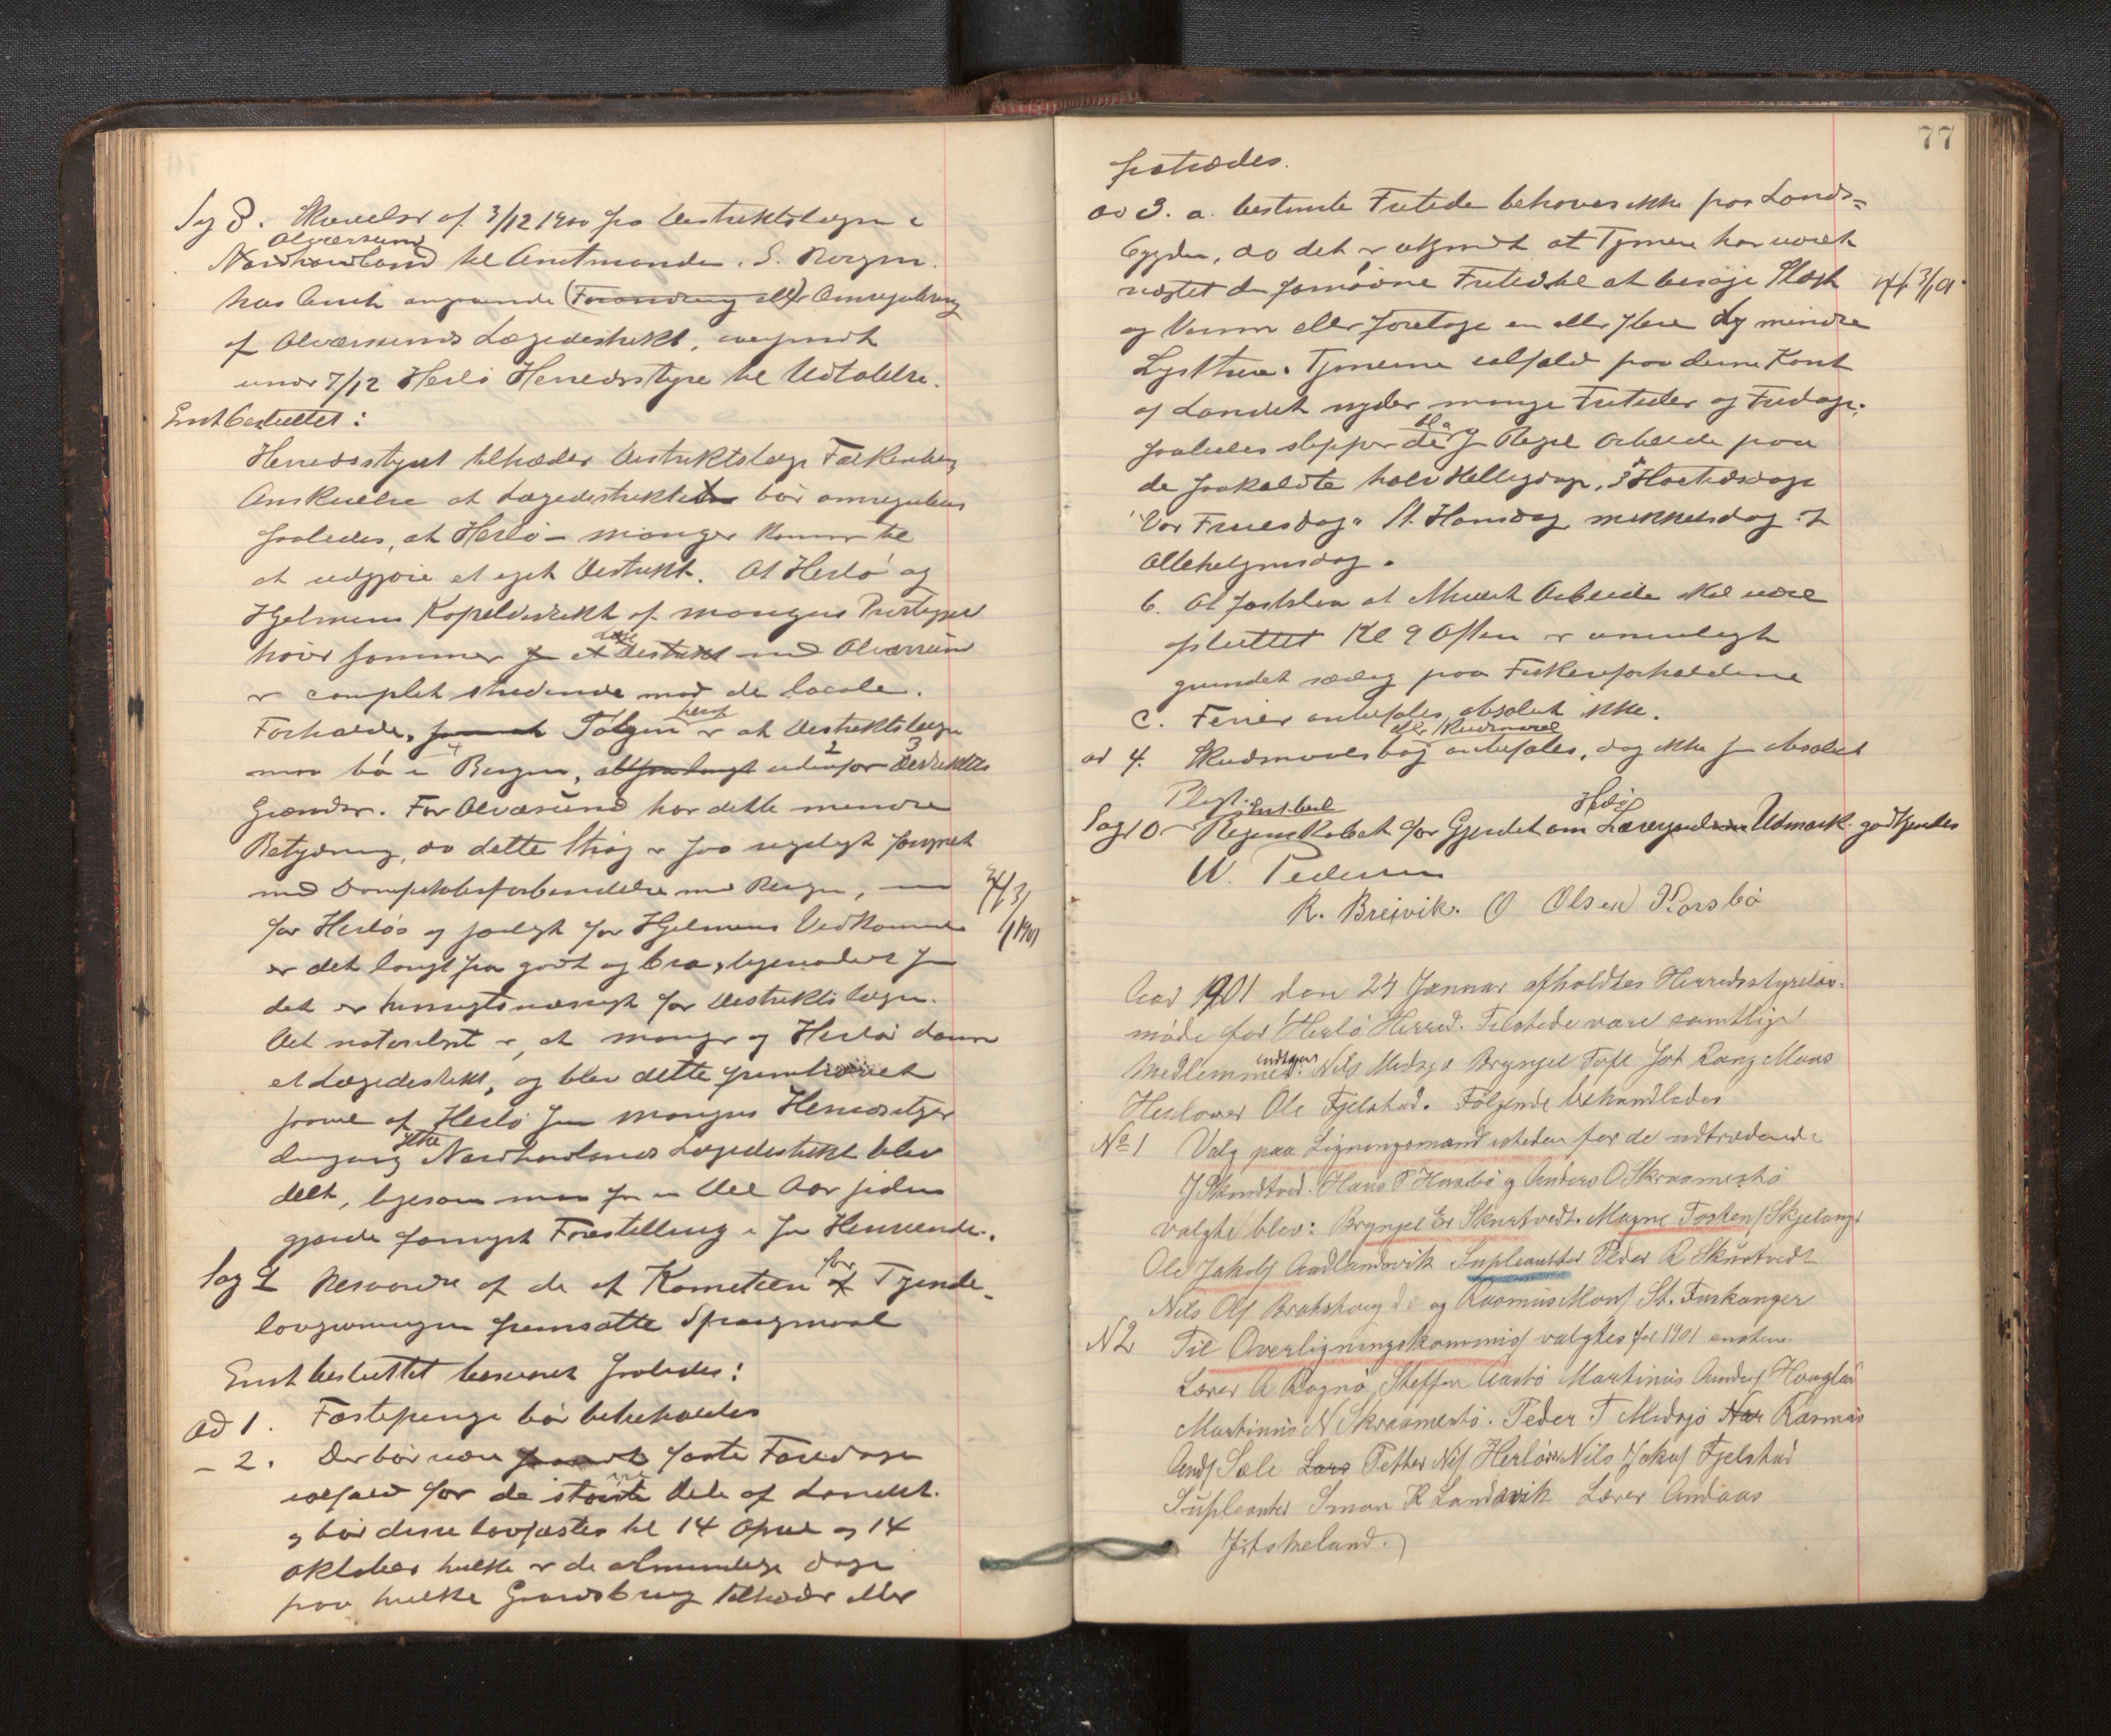 Sag 8. Skrivelse af 3/12 1900 fra Destriktslægen i
Alværsund
Nordhordland til Amtmanden i S. Bergen.
hus Amt angaaende (Forandring eller) Omregulering
af Alværsunds Lægedestrikt, oversendt
under 7/12 Herlø Herredsstyre til Udtalelse.
Enst besluttet:
Herredsstyret tilræder Destriktslæge Falkenberg
Anskuelse at Lægedestriktet bør omreguleres
saaledes, at Herlø - Manger kommer til
at udgjøre et eget Destrikt. At Herlø og
Hjelmens Kapeldestrikt af Mangers Prestegjeld
hører sammen med Alværsund
er complet stridende mod de locale
Forholde. Følgen er at Destriktslægen
maa bo i Bergen, udenfor Destriktets
Grændser. For Alværsund har dette mindre
Betydning, da dette Strøg er saa rigeligt forsynet
med Dampskibsforbindelse med Bergen, men
for Herløs og særligt for Hjelmens Vedkommende
er det langt fra godt og bra, ligesaalidt som
det er hensigtsmæssigt for Destriktslægen.
Det naturligste er, at Manger og Herlø danner
et Lægedestrikt, og blev dette fremhævet
saavel af Herlø som Mangers Herredsstyrer
dengang Nordhordlands Lægedestrikt blev
delt, ligesom man for en Del Aar siden
gjorde fornyet Forestilling i saa Henseende.
H 3/1 1901
Sag 9 Besvarelse af de af Komiteen for Tyende-
lovgivningen fremsatte Spørgsmaal
Enst besluttet besvaret saaledes:
ad 1. Fæstepenge bør bibeholdes
- 2. Der bør være faste Faredage
ialfald for de største Dele af Landet.
og bør disse lovfæstes til 14 April og 14
Oktober hvilke er de almindelige Dage
paa hvilke Gaardsbrug tiltrædes eller
77
fratrædes.
ad 3. a. bestemte Fritider behøves ikke paa Lands-
bygden, da det er ukjendt at Tjenere har været
nægtet de fornødne Fritider til at besøge Slægt
og Venner eller foretage en eller flere mindre
Lystture. Tjenerne ialfald paa denne Kant
af Landet nyder mange Fritider og Fridage.
saaledes slipper de i Regel Arbeide paa
de saakaldte halv Helligdage, 3die Høitidsdage
"Vor Fruesdag" St. Hansdag, Mikkelsdag og
Allehelgensdag.
H 3/1 01.
b. At fastslaa at Arbeide skal være
sluttet Kl 9 Aften er umuligt
grundet særlig paa Fiskeriforholdene
c. Ferier anbefales absolut ikke.
eller Skudsmaal
ad 4. Skudsmaalsbog anbefales, dog ikke som absolut
Pligt.
Enst. besl
Sag 10 - Regnskabet for Gjerdet om Herlø Lærergaards Udmark godkjendes
W. Pedersen
R. Breivik. O Olsen Rossbø
Aar 1901 den 24 Januar afholdtes Herredsstyrelses-
møde for Herlø Herred. Tilstede vare samtlige
Medlemmer undtagen Nils Midsjø Brynjel Toft Job Rang Mons
Herlover Ole Fjelstad. Følgende behandledes
No 1 Valg paa Ligningsmænd istedenfor de udtrædende
J Skurtved. Hans P Husebø og Anders O Skraamestø
valgte blev: Brynjel Er Skurtvedt. Magne Tosten/ Skjelanger
Ole Jakobs Aadlandsvik Supleanter Peder R Skurtvedt
Nils Ols Brakshaug do og Rasmus Mons/ St. Tuskanger
N 2 Til Overligningskommis/ valgtes for 1901 enstem.
Lærer A Rognø Steffen Aasbø Martinus Anders/ Haugland
Martinus N Skraamestø. Peder T Midsjø Rasmus
Ands/ Sæle Petter Nils/ Herløver Nils Jakos/ Fjelstad
Supleanter Simon R Landsvik Lærer Andaas
Fitskeland.